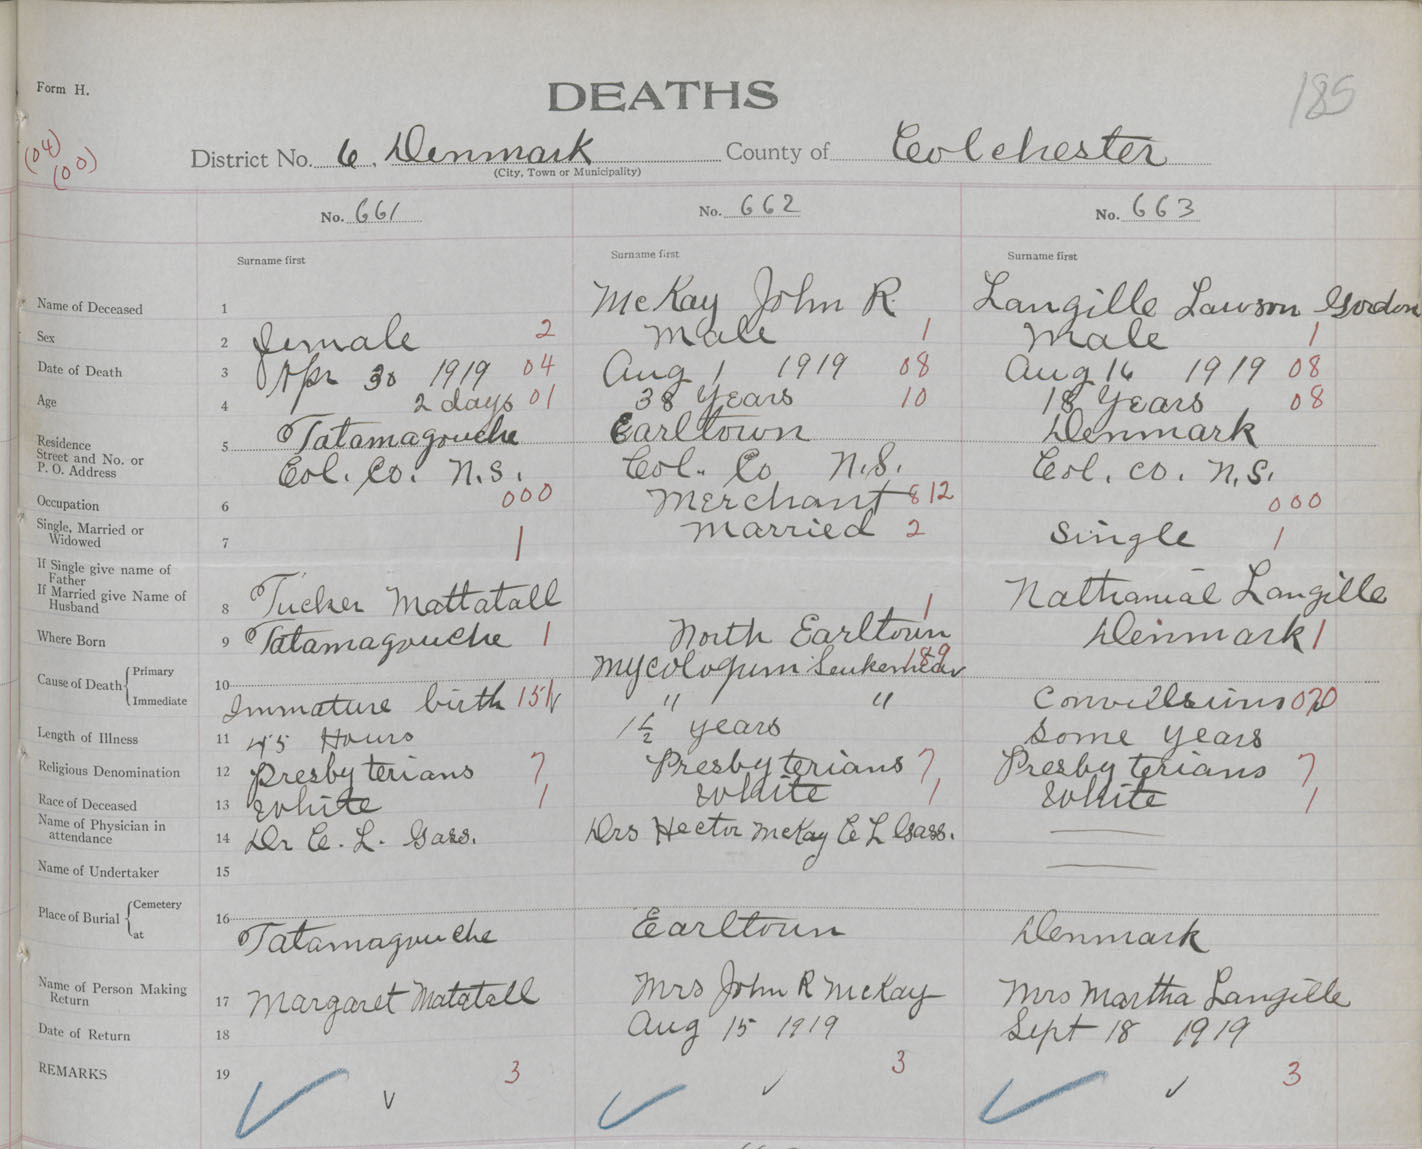 Form H.
DEATHS
185
(04)
(00)
District No. 6. Denmark County of Colchester
(City, Town or Municipality)
No. 661 No. 662 No. 663
Surname first Surname first Surname first
Name of Deceased 1 McKay John R. Langille Lawson Gordon
Sex 2 Female 2 Male 1 Male 1
Date of Death 3 Apr 30 1919 04 Aug 1 1919 08 Aug 16 1919 08
Age 4 2 days 01 38 Years 10 18 Years 08
Residence
Street and No. or
P. O. Address
5 Tatamagouche Earltown Denmark
Col. Co. N.S. Col. Co N.S. Col. co. N.S.
Occupation 6 000 Merchant 812 000
Single, Married or
Widowed
7 1 married 2 Single 1
If Single give name of
Father
If Married give Name of
Husband
8 Tucker Mattatall 1 Nathanial Langille
Where Born 9 Tatamagouche 1 North Earltown Denmark 1
Cause of Death { Primary 10 Leukemear 189
Immediate Immature birth 151 " " Convulsions 070
Length of Illness 11 45 Hours 1½ years Some years
Religious Denomination 12 Presbyterians 7 Presbyterians 7 Presbyterians 7
Race of Deceased 13 White 1 White 1 White 1
Name of Physician in
attendance
14 Dr E. L. Gass. Drs Hector McKay E L Gass.
Name of Undertaker 15
Place of Burial { Cemetery 16
at Tatamagouche Earltoun Denmark
Name of Person Making
Return
17 Margaret Matatall Mrs John R McKay Mrs Martha Langille
Date of Return 18 Aug 15 1919 Sept 18 1919
REMARKS 19 3 3 3